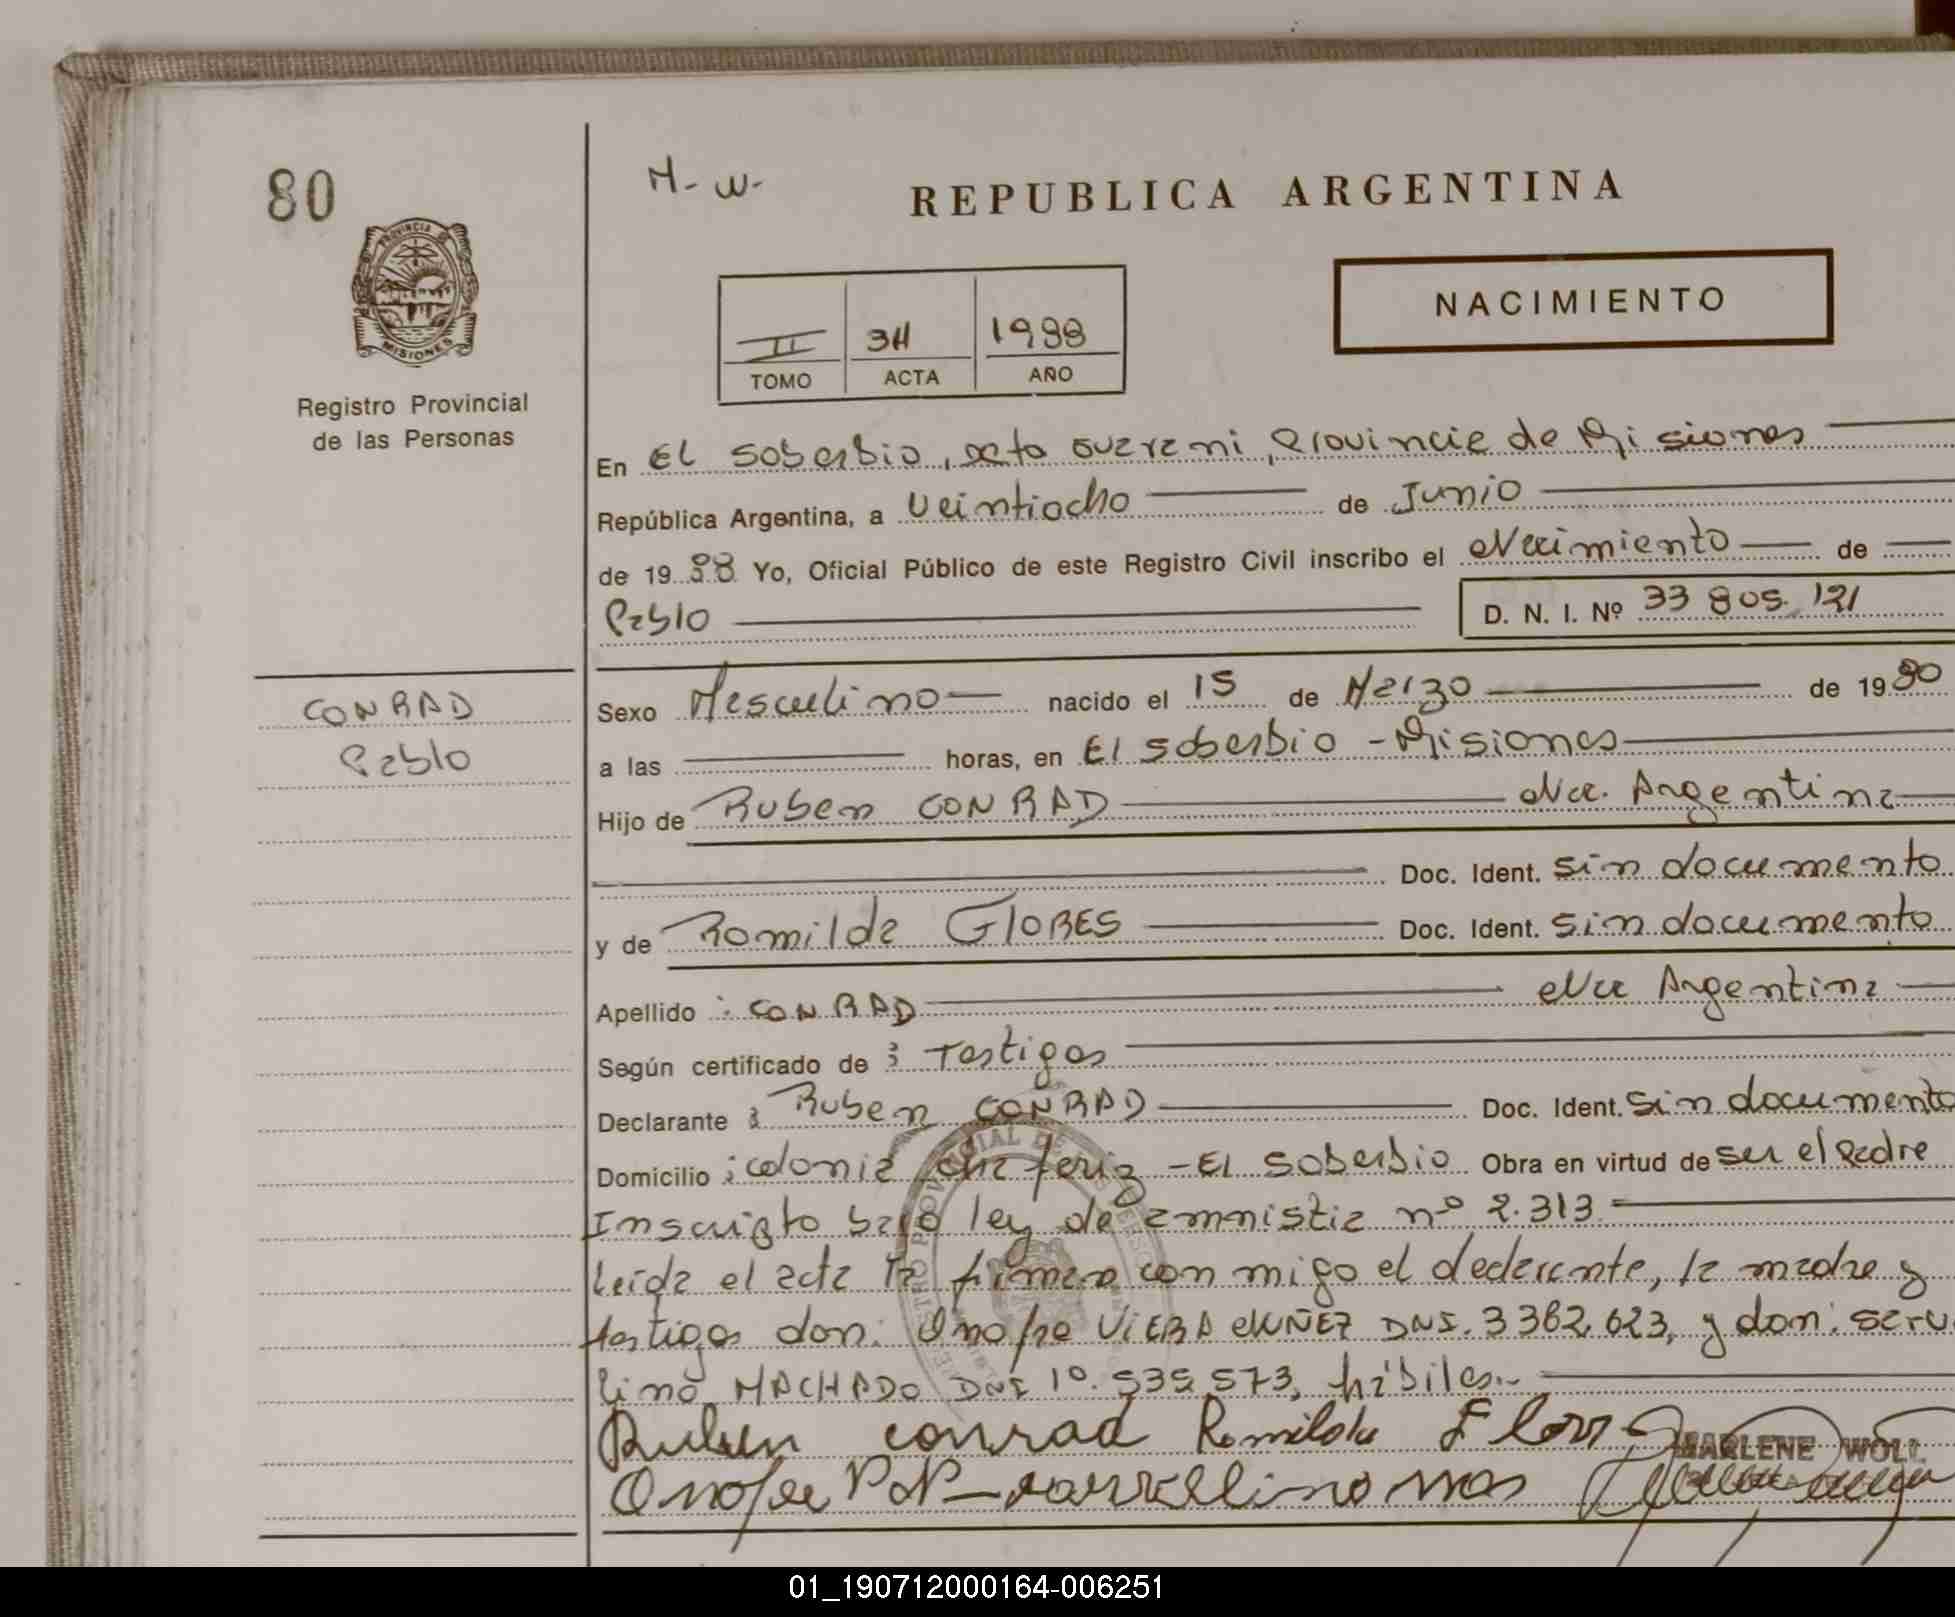 80
M-W-
REPUBLICA ARGENTINA
PROVINCIA DE
MISIONES
Registro Provincial
de las Personas
II 311 1988
TOMO ACTA AÑO
NACIMIENTO
En El Soberbio, Dcto Guarani, Provincia de Misiones
República Argentina, a Veintiocho de Junio
de 19 88 Yo, Oficial Público de este Registro Civil inscribo el Nacimiento de
Pablo D. N. I. Nº 33 805. 121
CONRAD
Pablo
Sexo Masculino nacido el 15 de Marzo de 19 80
a las horas, en El Soberbio - Misiones
Hijo de Ruben CONRAD Nac. Argentina
Doc. Ident. Sin documento
y de Romilda FLORES Doc. Ident. Sin documento
Apellido : CONRAD Nac Argentina
Según certificado de : Testigos
Declarante : Ruben CONRAD Doc. Ident. Sin documento
Domicilio : colonia - El Soberbio Obra en virtud de ser el Padre
Inscripto bajo ley de amnistia nº 2.313
Leida el acta la firman con migo el declarante, la madre y
testigos don: Onofre VIERA NUÑEZ DNI. 3 362. 623, y don: Serv
lino MACHADO DNI 10. 535 573, hábiles.-
Ruben conrad Romilda Flores
Onofre V N
MARLENE WOLL
01_190712000164-006251